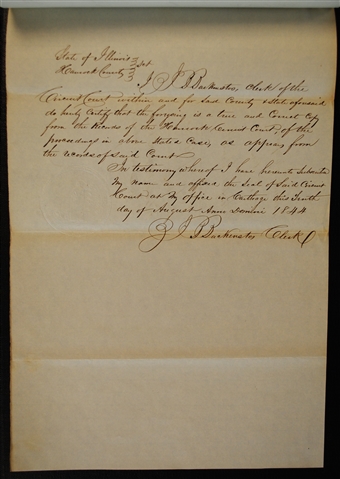 State of Illinois
Hancock County } Sct.
I J B Backenstos, clerk of the
Circuit Court within and for Said County & State aforesaid
do hereby Certify that the foregoing is a true and Correct Copy
from the Records of the Hancock Circuit Court, of the
proceedings in above Stated Cases, as appears from
the records of said Court
In testimony whereof I have hereunto Subscribed
My name and affixed the Seal of Said Circuit
Court at My office in Carthage this Tenth
day of August Anno Domini 1844
J B Backenstos Clerk